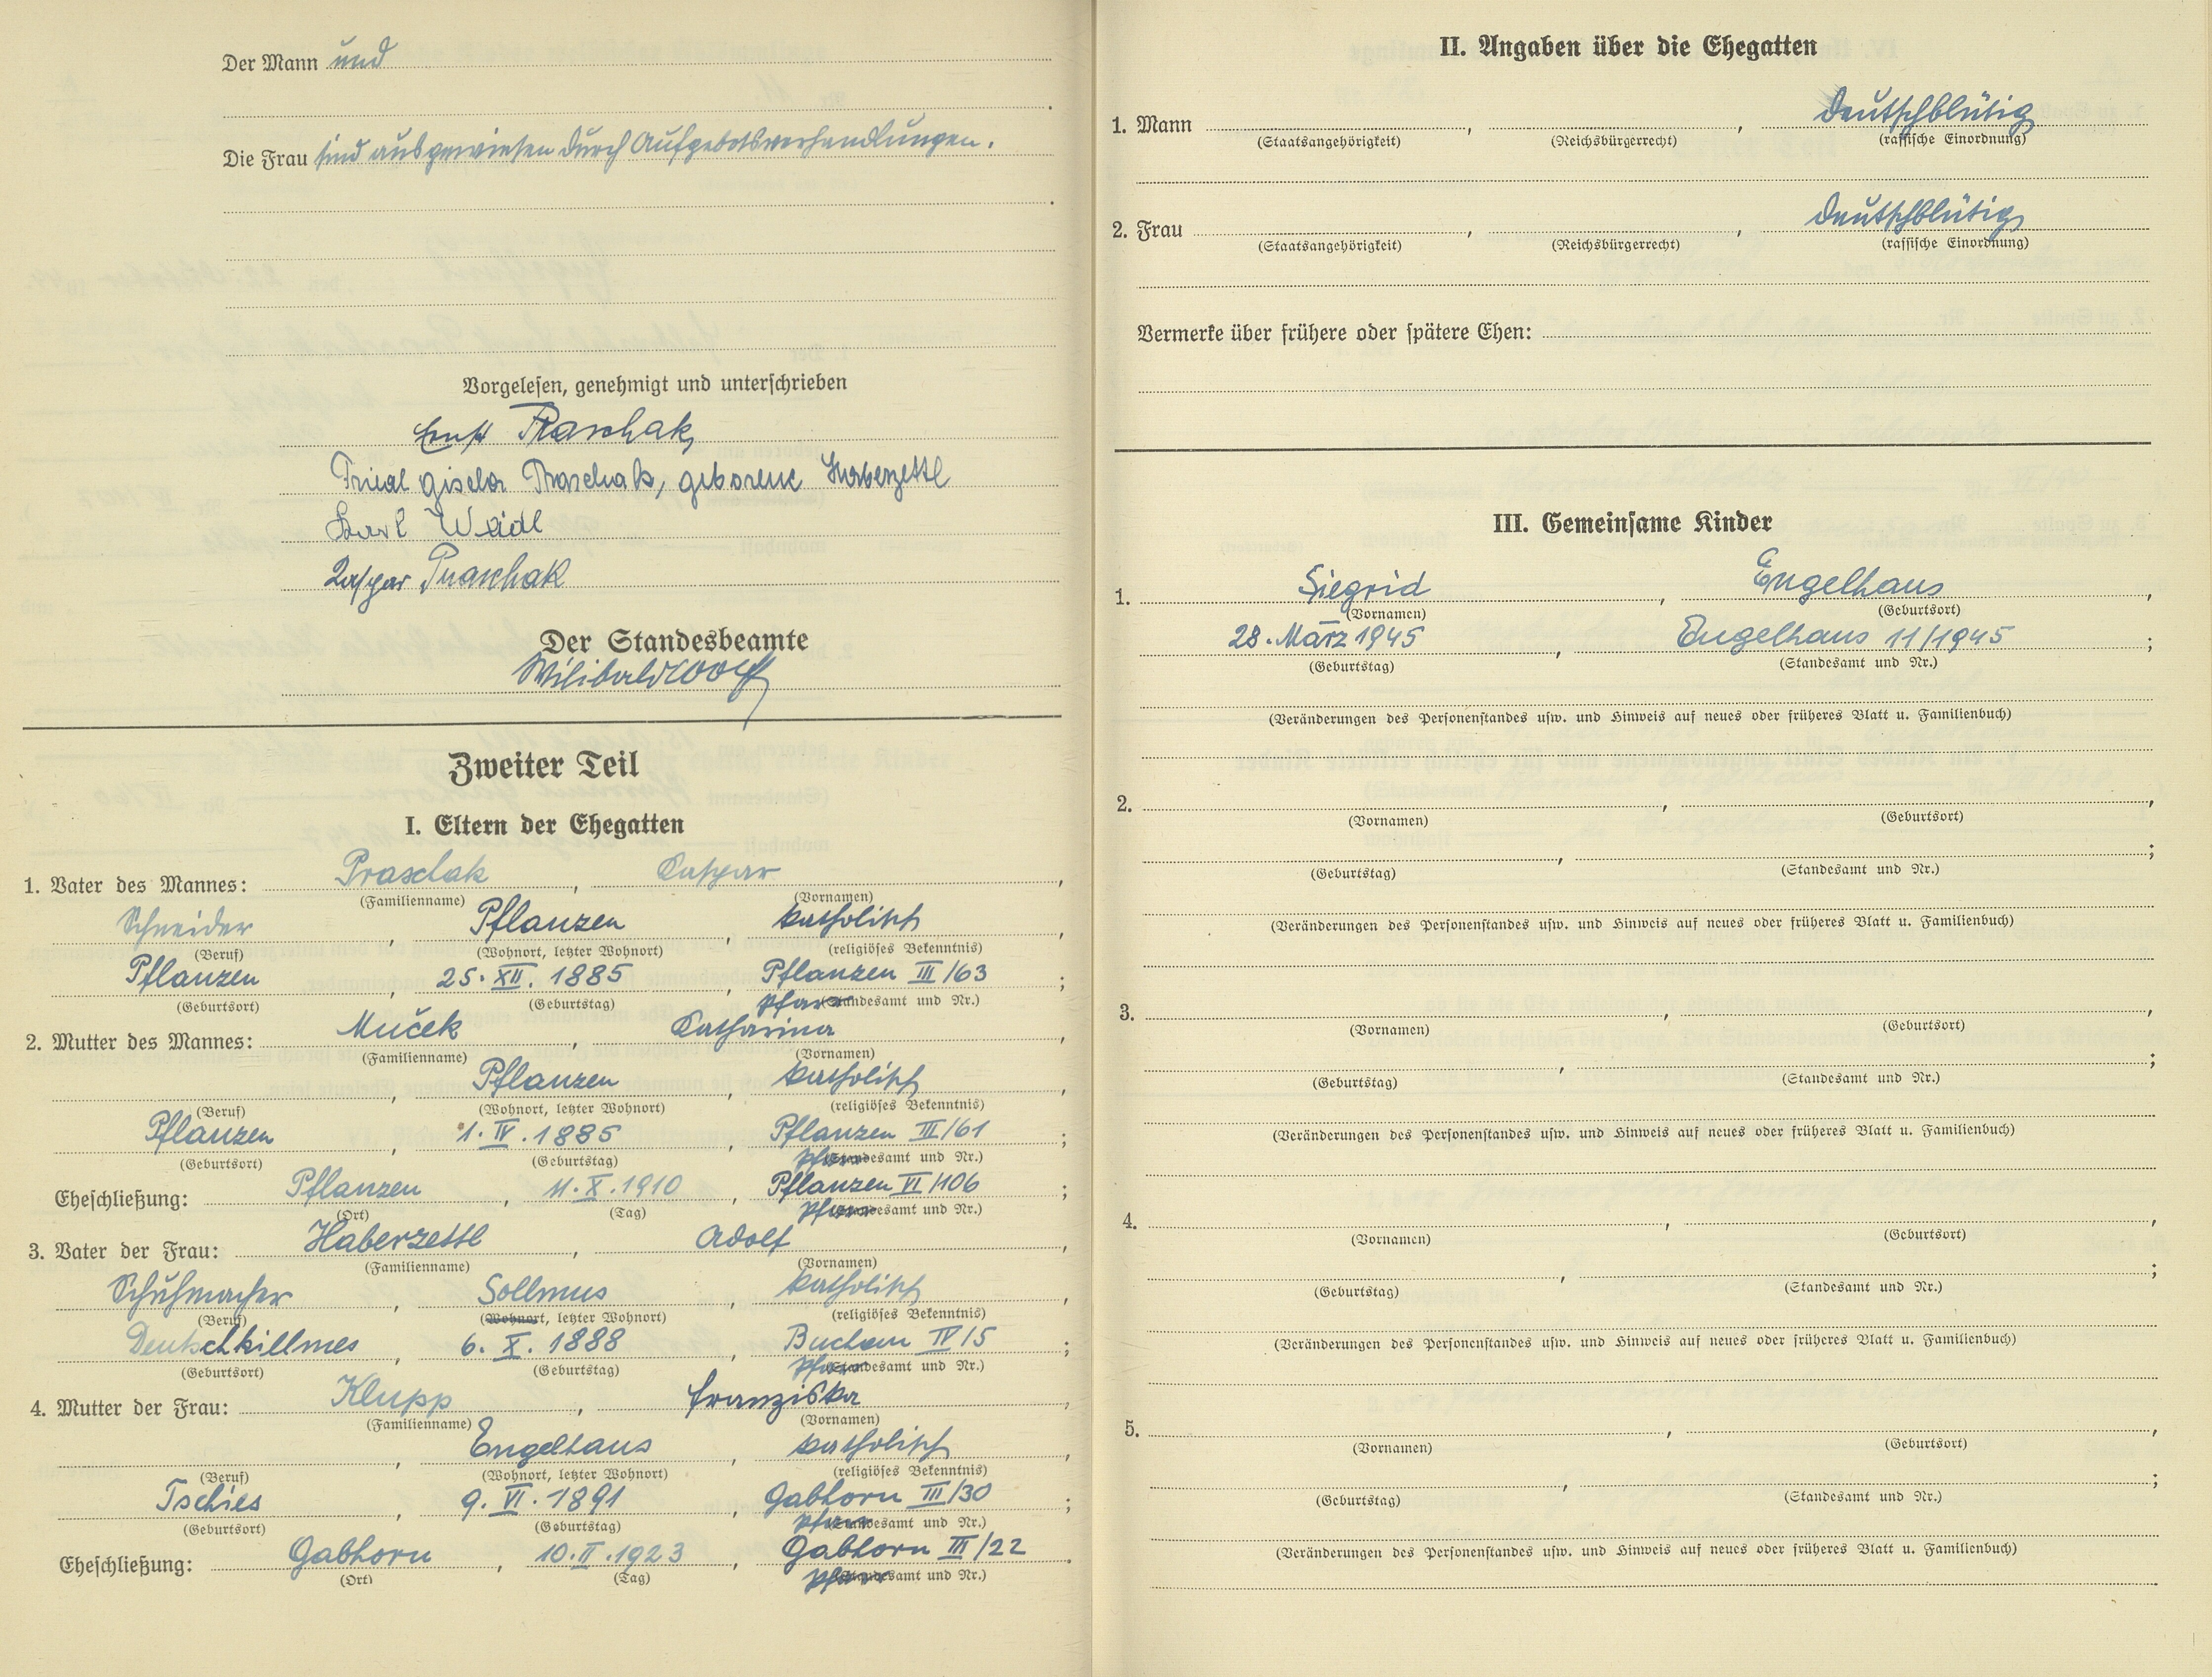 Der Mann und
Die Frau sind ausgewiesen durch Aufgebotsverhandlungen.
Vorgelesen, genehmigt und unterschrieben
Ernst Praschak
Gisela Praschak, geborene Haberzettl
Karl Weidl
Kaspar Praschak
Der Standesbeamte
Wilibald
Zweiter Teil
I. Eltern der Ehegatten
1. Vater des Mannes: Praschak, Caspar,
(Familienname) (Vornamen)
Schneider, Pflanzen, katholisch,
(Beruf) (Wohnort, letzter Wohnort) (religiöses Bekenntnis)
Pflanzen, 25. XII. 1885, Pflanzen III/63;
(Geburtsort) (Geburtstag) Pfarr (Standesamt und Nr.)
2. Mutter des Mannes: Muček, Catharina,
(Familienname) (Vornamen)
, Pflanzen, katholisch,
(Beruf) (Wohnort, letzter Wohnort) (religiöses Bekenntnis)
Pflanzen, 1. IV. 1885, Pflanzen III/61;
(Geburtsort) (Geburtstag) Pfarr (Standesamt und Nr.)
Eheschließung: Pflanzen, 11. X. 1910, Pflanzen VI/106;
(Ort) (Tag) Pfarr (Standesamt und Nr.)
3. Vater der Frau: Haberzettl, Adolf
(Familienname) (Vornamen)
Schuhmacher, Sollmus, katholisch,
(Beruf) (Wohnort, letzter Wohnort) (religiöses Bekenntnis)
Deutschkillmes, 6. X. 1888, Buchau IV/5;
(Geburtsort) (Geburtstag) Pfarr (Standesamt und Nr.)
4. Mutter der Frau: Klupp, Franziska,
(Familienname) (Vornamen)
, Engelhaus, katholisch,
(Beruf) (Wohnort, letzter Wohnort) (religiöses Bekenntnis)
Tschies, 9. VI. 1891, Gabhorn III/30;
(Geburtsort) (Geburtstag) Pfarr (Standesamt und Nr.)
Eheschließung: Gabhorn, 10. II. 1923, Gabhorn III/22.
(Ort) (Tag) Pfarr (Standesamt und Nr.)
II. Angaben über die Ehegatten
1. Mann , , deutschblütig
(Staatsangehörigkeit) (Reichsbürgerrecht) (rassische Einordnung)
2. Frau , , deutschblütig
(Staatsangehörigkeit) (Reichsbürgerrecht) (rassische Einordnung)
Vermerke über frühere oder spätere Ehen:
III. Gemeinsame Kinder
1. Siegrid, Engelhaus,
(Vornamen) (Geburtsort)
28. März 1945, Engelhaus 11/1945;
(Geburtstag) (Standesamt und Nr.)
(Veränderungen des Personenstandes usw. und Hinweis auf neues oder früheres Blatt u. Familienbuch)
2. , ,
(Vornamen) (Geburtsort)
, ;
(Geburtstag) (Standesamt und Nr.)
(Veränderungen des Personenstandes usw. und Hinweis auf neues oder früheres Blatt u. Familienbuch)
3. , ,
(Vornamen) (Geburtsort)
, ;
(Geburtstag) (Standesamt und Nr.)
(Veränderungen des Personenstandes usw. und Hinweis auf neues oder früheres Blatt u. Familienbuch)
4. , ,
(Vornamen) (Geburtsort)
, ;
(Geburtstag) (Standesamt und Nr.)
(Veränderungen des Personenstandes usw. und Hinweis auf neues oder früheres Blatt u. Familienbuch)
5. , ,
(Vornamen) (Geburtsort)
, ;
(Geburtstag) (Standesamt und Nr.)
(Veränderungen des Personenstandes usw. und Hinweis auf neues oder früheres Blatt u. Familienbuch)